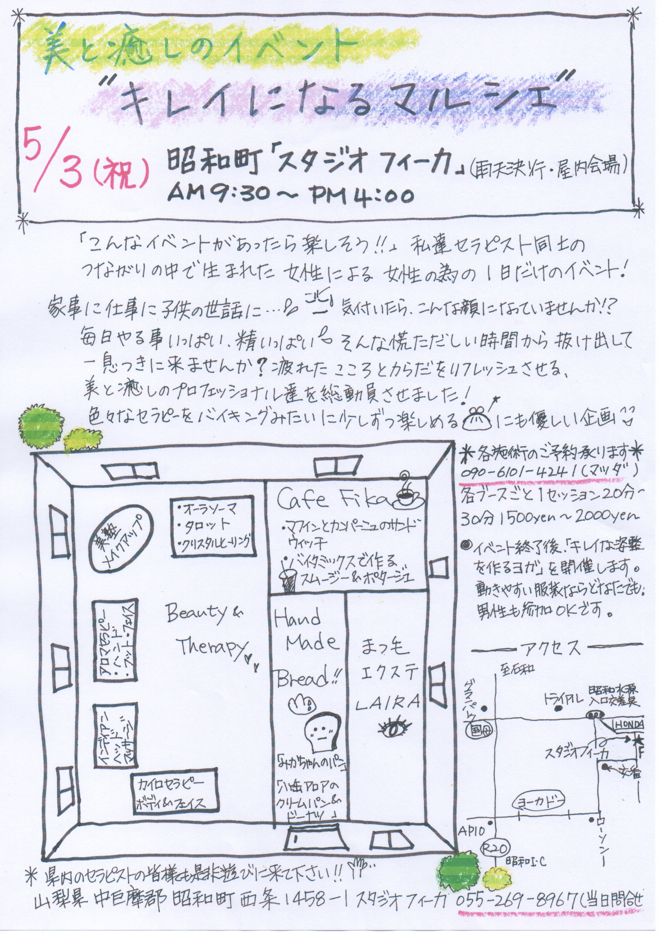 美と癒しのイベント
"キレイになるマルシェ"
5/3(祝) 昭和町「スタジオ フィーカ」(雨天決行・屋内会場)
AM 9:30〜PM 4:00
「こんなイベントがあったら楽しそう!!」 私達セラピスト同士の
つながりの中で生まれた 女性による 女性の為の 1日だけのイベント!
家事に仕事に子供の世話に… 気付いたら、こんな顔になっていませんか!?
毎日やる事いっぱい、精いっぱい そんな慌ただしい時間から 抜け出して
一息つきに来ませんか? 疲れた こころとからだをリフレッシュさせる、
美と癒しのプロフェッショナル達を総動員させました!
色々なセラピーをバイキングみたいに少しずつ楽しめる にも優しい企画
*各施術のご予約承ります*
090-6101-4241(マツダ)
各ブースごと1セッション20分〜
30分 1500yen〜2000yen
●イベント終了後、「キレイな姿勢
を作るヨガ」を開催します。
動きやすい服装ならどなたでも。
男性も参加OKです。
美整
メイクアップ
・オーラソーマ
・タロット
・クリスタルヒーリング
Cafe Fika
・マフィンとカンパーニュのサンド
ウィッチ
・バイタミックスで作る
スムージー&ポタージュ
アロマセラピー
・ハンド
・フット・フェイス
Beauty &
Therapy
Hand
Made
Bread!!
「みかちゃんのパン」
クリームパン&
ドーナツ」
まつ毛
エクステ
LAIRA
インディアン
ヘッド
マッサージ
カイロセラピー
ボディ&フェイス
アクセス
至石和
グランパーク
国母
トライアル
昭和水源
入口交差点
HONDA
スタジオフィーカ
F
交番
イトーヨーカドー
ローソン
APIO
R20
昭和I・C
*県内のセラピストの皆様も是非遊びに来て下さい!!
山梨県 中巨摩郡 昭和町 西条1458-1 スタジオ フィーカ 055-269-8967(当日問合せ